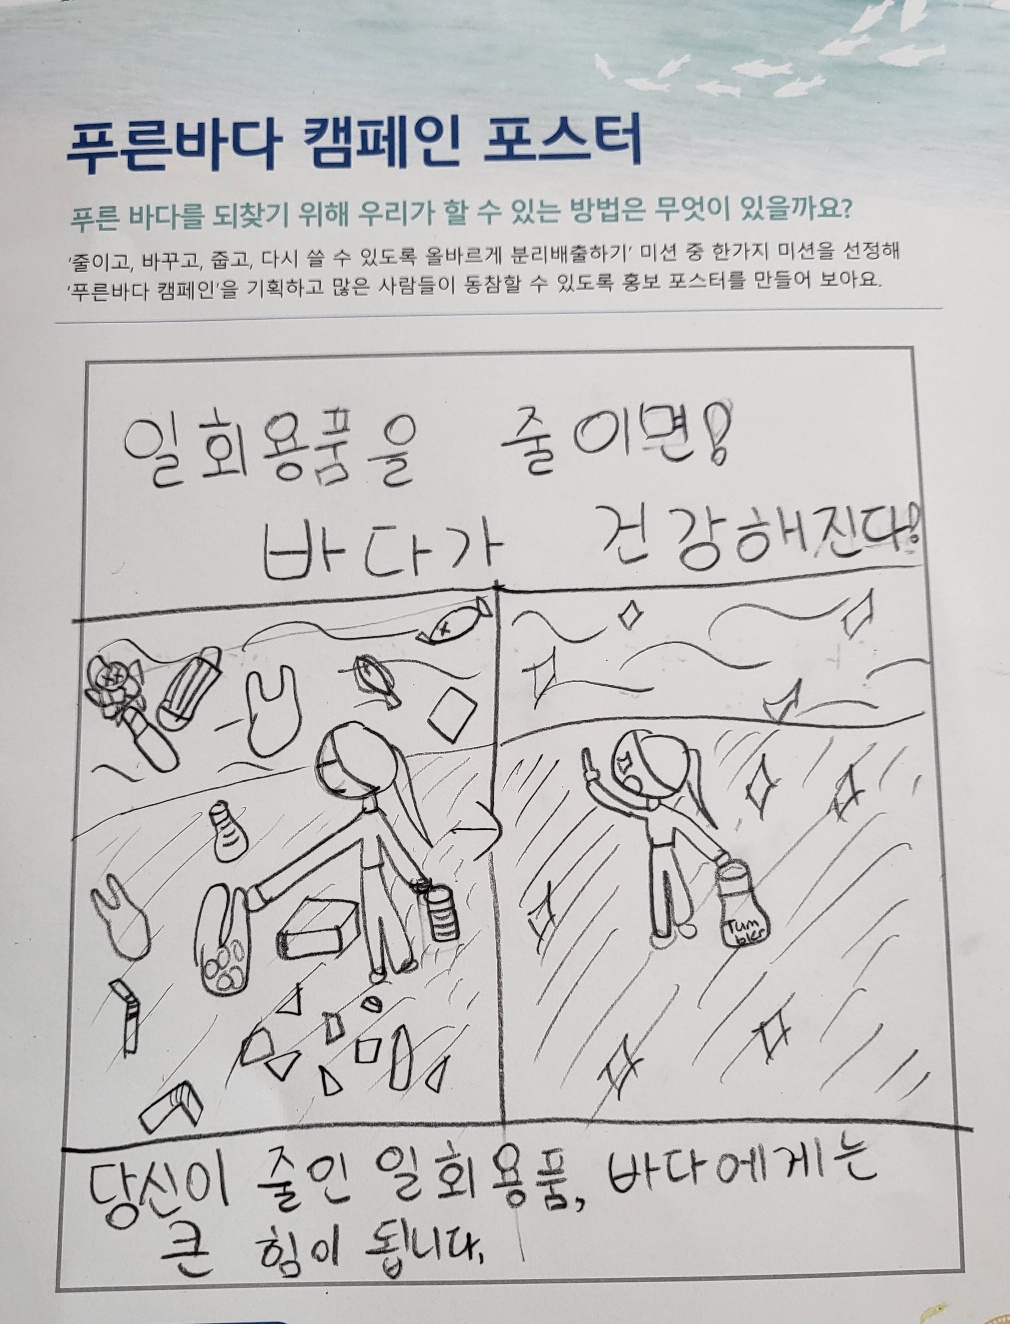 푸른바다 캠페인 포스터
푸른 바다를 되찾기 위해 우리가 할 수 있는 방법은 무엇이 있을까요?
'줄이고, 바꾸고, 줍고, 다시 쓸 수 있도록 올바르게 분리배출하기' 미션 중 한가지 미션을 선정해
'푸른바다 캠페인'을 기획하고 많은 사람들이 동참할 수 있도록 홍보 포스터를 만들어 보아요.
일회용품을 줄이면!
바다가 건강해진다!
Tum
bler
당신이 줄인 일회용품, 바다에게는
큰 힘이 됩니다.